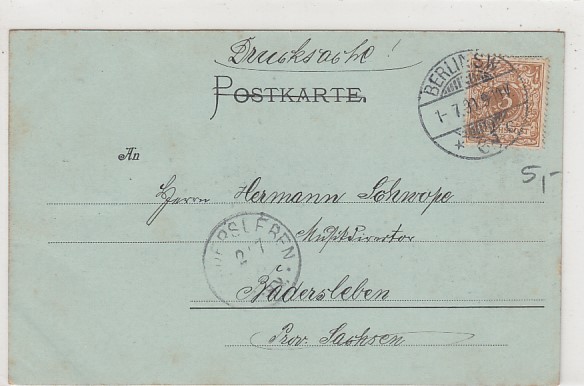 Drucksache!
POSTKARTE.
BERLIN S.W.
1-7.
An
Herrn Hermann Schwope
Musikdirector
DERSLEBEN
2 7
Badersleben
Prov. Sachsen
5,-